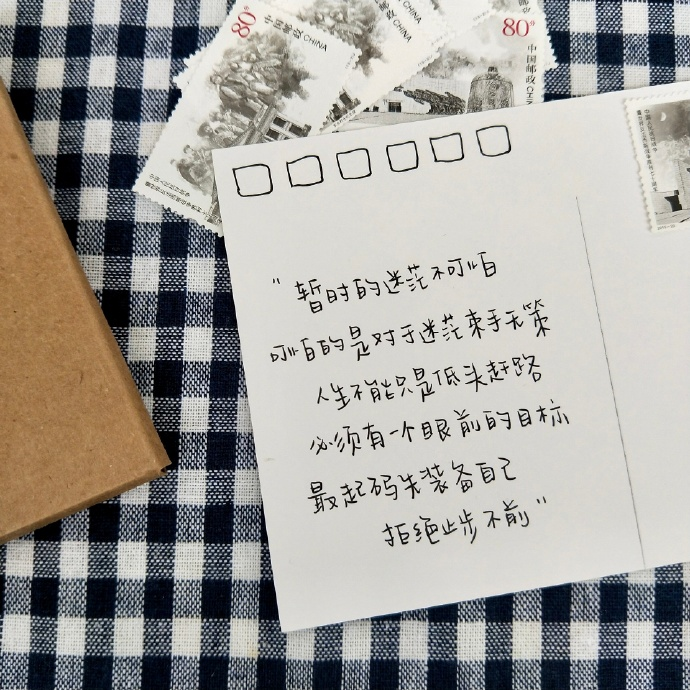 80分
中国邮政 CHINA
中国邮政 CHINA
80分
中国邮政
“暂时的迷茫不可怕
可怕的是对于迷茫束手无策
人生不能只是低头赶路
必须有一个眼前的目标
最起码先装备自己
拒绝止步不前”